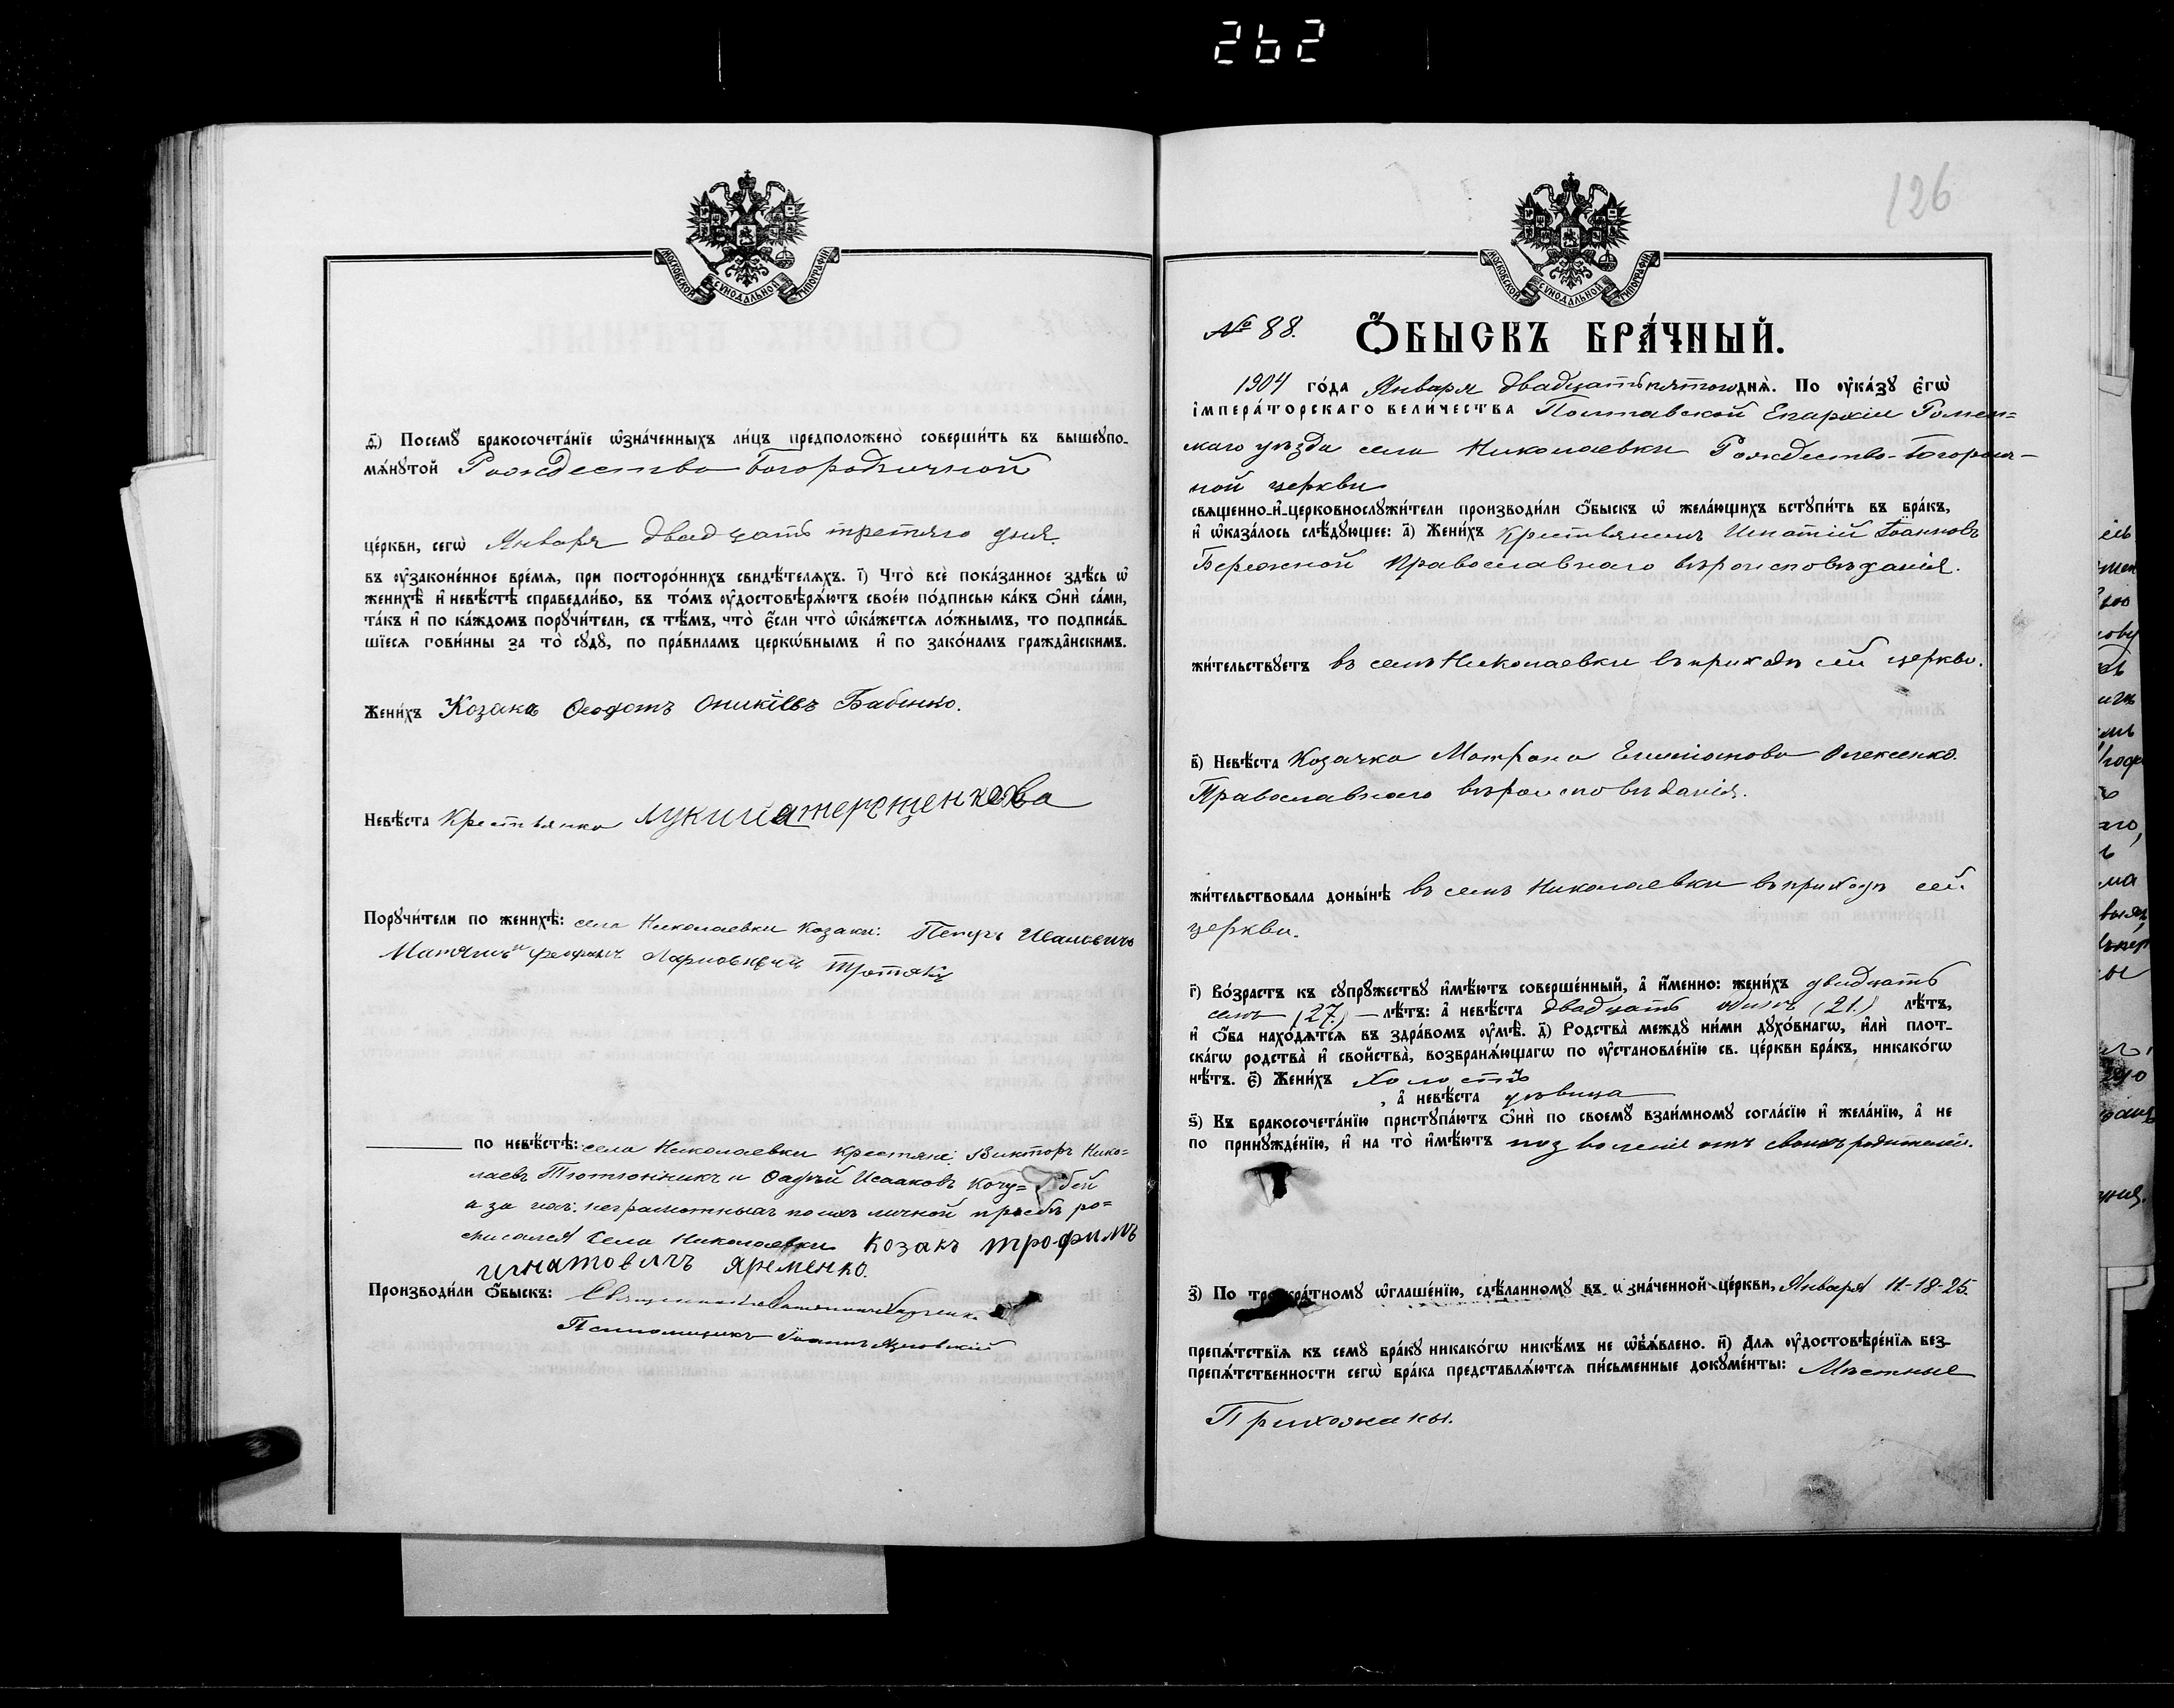 262
МОСКОВСКОЙ СѴНОДАЛЬНОЙ ТИПОГРАФІИ
д҃і) Посемꙋ бракосочета́нїе ѡ҆зна́ченныхъ ли́цъ предположено̀ соверши́ть въ вышеꙋпо-
мѧ́нꙋтой Рождество Богородичной
це́ркви, сегѡ̀ Января двадцать третьяго дня
въ ᲂу҆зако́не́нное вре́мѧ, при посторо́ннихъ свидѣ́телѧхъ. і҃) Что̀ всѐ пока́занное здѣ́сь ѡ҆
женихѣ̀ и҆ невѣ́стѣ справедли́во, въ то́мъ ᲂу҆достовѣрѧ́ютъ свое́ю по́дписью ка́къ ѻ҆нѝ са́ми,
та́къ и҆ по ка́ждомъ порꙋчи́тели, съ тѣ́мъ, что̀ є҆́сли что̀ ѡ҆ка́жетсѧ ло́жнымъ, то подписа́в-
шїесѧ гови́нны за то̀ сꙋдꙋ̀, по пра́виламъ церкѡ́внымъ и҆ по зако́намъ гражда̂нскимъ.
Жени́хъ Козакъ Ѳеодотъ Оникіевъ Бабенко.
Невѣ́ста Крестьянка Лукия
Порꙋчи́тели по женихѣ̀: села Николаевки Козаки: Петръ Иванович
Матяшъ и Ларионович
по невѣ́стѣ: села Николаевки крестяне: Викторъ Нико=
лаевъ Тютюнникъ и Фадѣй Исааковъ Кочу=бей
а за неграмотныхъ по ихъ личной прозбѣ ро=
списался села Николаевки козакъ трофимъ
игнатовичъ яременко.
Производи́ли ѻ҆́быскъ: Священникъ
Псаломщикъ Іоаннъ
126
МОСКОВСКОЙ СѴНОДАЛЬНОЙ ТИПОГРАФІИ
№ 88. Ѻ҆БЫСКЪ БРА́ЧНЫЙ.
1904 го́да Января двадцать пятого днѧ̀. По ᲂу҆ка́зꙋ є҆гѡ̀
і҆мпера́торскаго вели́чества Полтавской Епархіи Ромен=
скаго уѣзда села Николаевки Рождество-Богородич-
ной церкви
свѧще́нно-и҆-церковнослꙋжи́тели производи́ли ѻ҆́быскъ ѡ҆ жела́ющихъ встꙋпи́ть въ бра́къ,
и҆ ѡ҆каза́лось слѣ́дꙋющее: а҃) Жени́хъ Крестьянинъ Игнатій Іоанновъ
Бережной Православнаго вѣроисповѣданія.
жи́тельствꙋетъ въ селѣ Николаевки въ приходѣ сей церкви.
в҃) Невѣ́ста Козачка Матрона Олексенко.
Православнаго вѣроисповѣданія.
жи́тельствовала доны́нѣ въ селѣ Николаевки въ приходѣ сей
церкви.
г҃) Во́зрастъ къ сꙋпрꙋ́жествꙋ и҆мѣ́ютъ соверше́нный, а҆ и҆́менно: жени́хъ двадцать
семь (27.) – лѣ́тъ: а҆ невѣ́ста двадцать одинъ (21.) лѣ́тъ,
и҆ ѻ҆́ба нахо́дѧтсѧ въ здра́вомъ ᲂу҆мѣ̀. д҃) Родства̀ междꙋ̀ ни́ми дꙋхо́внагѡ, и҆лѝ плот-
ска́гѡ родства̀ и҆ свойства̀, возбранѧ́ющагѡ по ᲂу҆становле́нїю св. це́ркви бра́къ, никако́гѡ
нѣ́тъ. є҃) Жени́хъ холостъ
, а҆ невѣ́ста дѣвица
ѕ҃) Къ бракосочета́нїю пристꙋпа́ютъ ѻ҆нѝ по своемꙋ̀ взаи́мномꙋ согла́сїю и҆ жела́нїю, а҆ не
по принꙋжде́нїю, и҆ на то̀ и҆мѣ́ютъ позволеніе отъ своихъ родителей.
з҃) По троекра́тномꙋ ѡ҆глаше́нїю, сдѣ́ланномꙋ въ ѡзна́ченной це́ркви, Января 11-18-25.
препѧ́тствїѧ къ семꙋ̀ бра́кꙋ никако́гѡ никѣ́мъ не ѡ҆б̾ѧ́влено. и҃) Для ᲂу҆достовѣре́нїѧ без-
препѧ́тственности сегѡ̀ бра́ка представлѧ́ютсѧ пи́сьменные докꙋме́нты: Мѣстные
Прихожаны.